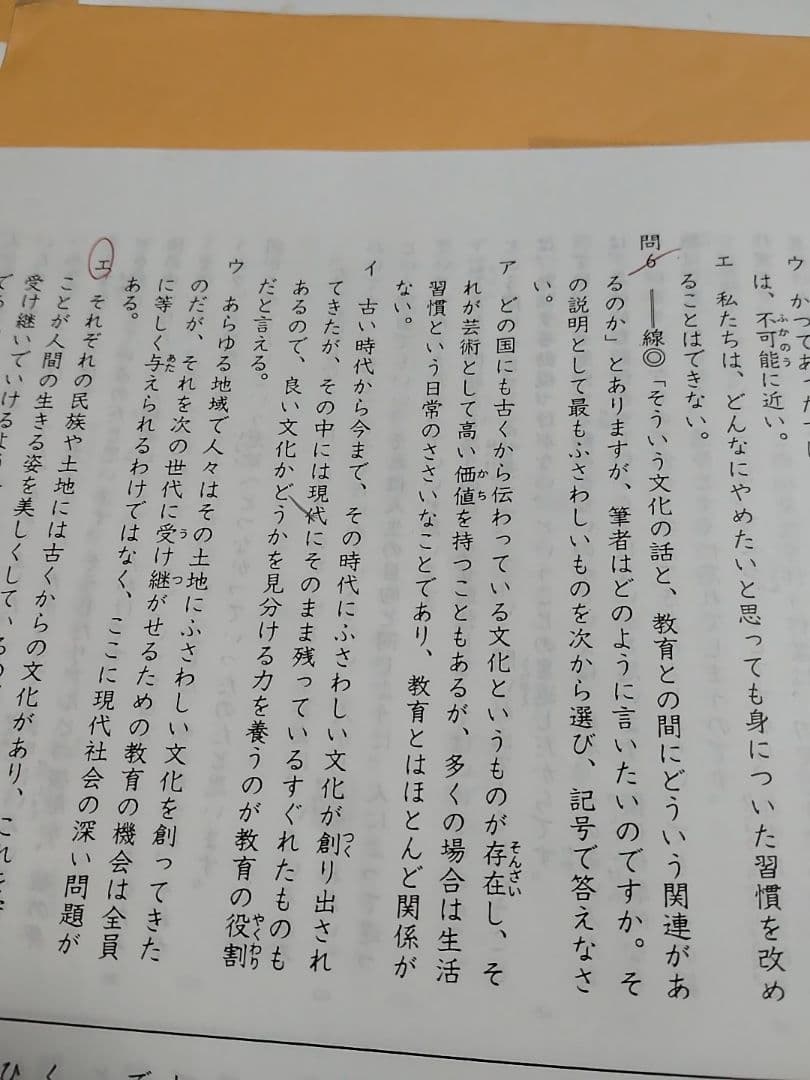 ウ かつてあった
は、不可能に近い。
ふかのう
エ 私たちは、どんなにやめたいと思っても身についた習慣を改め
ることはできない。
問6 ――線◎「そういう文化の話と、教育との間にどういう関連があ
るのか」とありますが、筆者はどのように言いたいのですか。そ
の説明として最もふさわしいものを次から選び、記号で答えなさ
い。
ア どの国にも古くから伝わっている文化というものが存在し、そ
そんざい
れが芸術として高い価値を持つこともあるが、多くの場合は生活
かち
習慣という日常のささいなことであり、教育とはほとんど関係が
ない。
イ 古い時代から今まで、その時代にふさわしい文化が創り出され
つく
てきたが、その中には現代にそのまま残っているすぐれたものも
あるので、良い文化かどうかを見分ける力を養うのが教育の役割
やくわり
だと言える。
ウ あらゆる地域で人々はその土地にふさわしい文化を創ってきた
のだが、それを次の世代に受け継がせるための教育の機会は全員
う つ
に等しく与えられるわけではなく、ここに現代社会の深い問題が
あた
ある。
エ それぞれの民族や土地には古くからの文化があり、これを
ことが人間の生きる姿を美しくしているの
受け継いでいけるよう